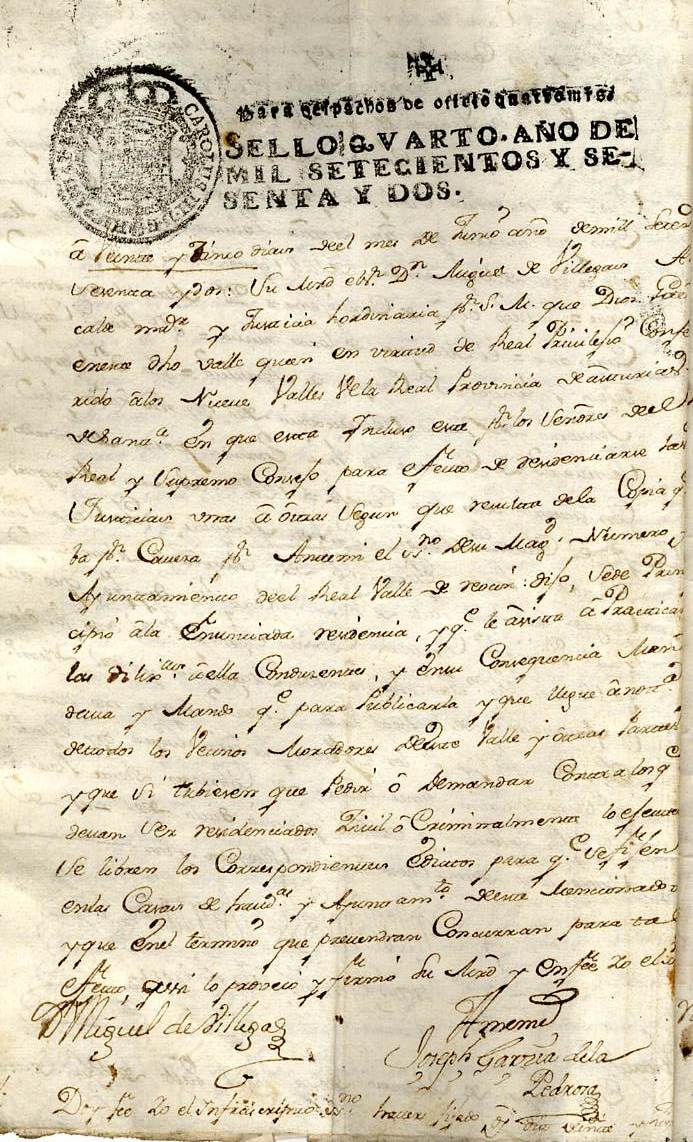 CAROLUS III D G HISPANIAR
Para despachos de oficio quatro mrs.
SELLO QVARTO. AÑO DE
MIL SETECIENTOS Y SE-
SENTA Y DOS.
â Veinte y Zinco dias deel mes de Junio año demill Setez
Sesenta y dos: Su Mrd el Sr. Dn Miguel de Villegas Al
calde maior y Justicia hordinaria pr. S. M. que Dios Gde
eneste dho valle quien en virtud de Real Privilejio Confe
rido âlos Nueve Valles dela Real Provincia de asturias
de Santa. en que esta Incluso este pr. los Señores deel
Real y Supremo Consejo para efecto de residenciarse las
Justicias unas â otras segun que resulta dela Copia q
ba pr. Cavera pr. Antemi el ssno. desu Magd. Numero y
Ayuntamiento deel Real Valle de reocin: dijo, sede Prin
cipio âla Enunciada residencia, y qe. le âsista â Practicar
las diliz.as âella Conduzentes, y ensu Consequencia
devia y Mando qe. para Publicarla y que llegue ânota
detodos los Vecinos Moradores deeste Valle y ôtras Partes
y que si tubiesen que Pedir ô demandar Contra los qe
devan ser residenciados Zivil ô Criminalmente lo ejecuten
se libren los Correspondientes Edictos para qe. sefijen
enlas Casas de Aud.as y Ayuntamto deeste Mencionado
y que enel termino que prevendran Concurran para tal
efecto, que asi lo proveio y firmó Su Mrd y enfee Yo el ssno
D Miguel de Villegas
Antemi
Joseph Garcia dela
Pedrosa
Doy fee Yo el infraescripto ssno haver fijado oy dia veinte y